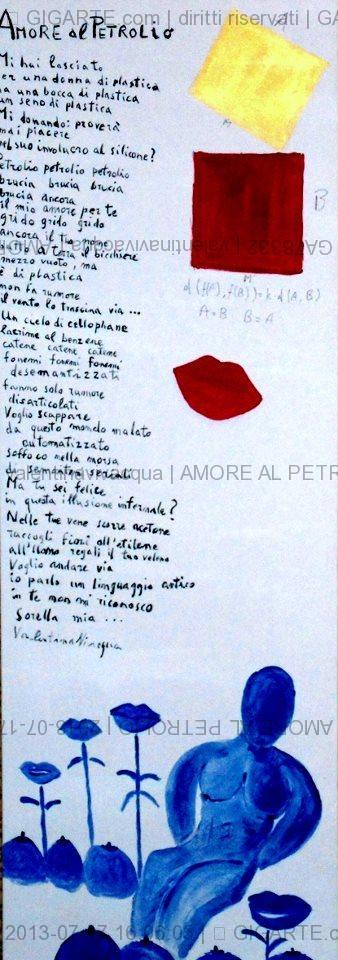 GIGARTE.com | diritti riservati | GA
AMORE al PETROLIO
Mi hai lasciato
per una donna di plastica
ha una bocca di plastica
un seno di plastica
Mi domando: proverà
mai piacere
nel suo involucro al silicone?
petrolio petrolio petrolio
brucia brucia brucia
brucia ancora
il mio amore per te
grido grido grido
ancora il
il bicchiere
mezzo vuoto, ma
è di plastica
non fa rumore
il vento lo trascina via...
Un cielo di cellophane
lacrime al benzene
catene catene catene
fonemi fonemi fonemi
desemantizzati
fanno solo rumore
disarticolati
Voglio scappare
da questo mondo malato
automatizzato
soffoco nella morsa
di semantemi seriali
Ma tu sei felice
in questa illusione infernale?
Nelle tue vene scorre acetone
raccogli fiori all'etilene
all'uomo regali il tuo veleno
Voglio andare via
io parlo un linguaggio antico
in te non mi riconosco
Sorella mia ...
Valentina Vinacqua
A
B
d(f(A), f(B)) = k d(A, B)
A=B B=A
GA78332
valentinavivacqua | AMORE AL PETR
AMORE AL PETROLIO | 2013-07-17
2013-07-17 16:06:05 | GIGARTE.c